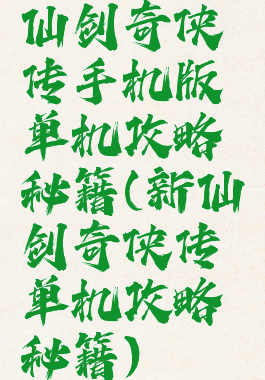 仙剑奇侠
传手机版
单机攻略
秘籍(新仙
剑奇侠传
单机攻略
秘籍)